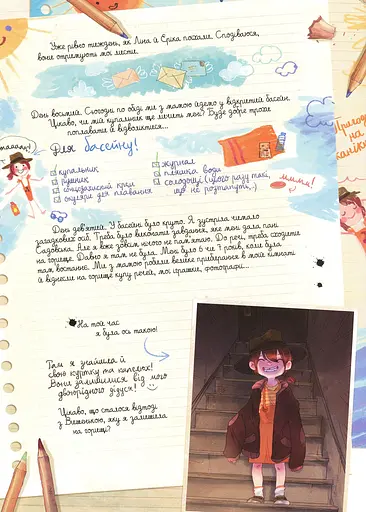 Уже рівно тиждень, як Ліна й Еріка поїхали. Сподіваюся,
вони отримують мої листи.
День восьмий. Сьогодні по обіді ми з мамою йдемо у відкритий басейн.
Цікаво, чи мій купальник ще личить мені? Буде добре трохи
поплавати й відволіктися...
Для басейну!
купальник
рушник
сонцезахисний крем
окуляри для плавання
журнал
пляшка води
солодощі (цього разу такі,
що не розтануть;-)
Пригоди
на
День дев'ятий. У басейні було круто. Я зустріла чимало
загадкових осіб. Треба було виконати завдання, яке мені дала пані
Садовська. Але я вже зовсім нічого не пам'ятаю. До речі, треба сходити
на горище. Давно я там не була. Мені було 6 чи 7 років, коли була
там востаннє. Ми з мамою робили велике прибирання в моїй кімнаті
й віднесли на горище купу речей, мої іграшки, фотографії...
На той час
я була ось такою!
Там я знайшла й
свою куртку та капелюх!
Вони залишилися від мого
двоюрідного дідуся!
Цікаво, що сталося відтоді
з Вишенькою, яку я залишила
на горищі?